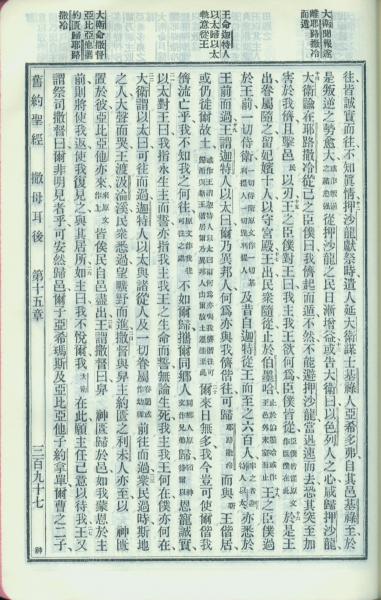 大衛聞報遂
離耶路撒冷
而遁
王命迦特人
以太歸以太
執意從王
大衛命撒督
亞比亞他攜
約匱歸耶路
撒冷
往皆誠實而往不知眞情押沙龍獻祭時遣人延大衛謀士基祿人亞希多弗自其邑基祿至於
是叛逆之勢愈大從押沙龍之民日漸增益或告大衛曰以色列人之心咸歸押沙龍
大衛諭在耶路撒冷從己之臣僕曰我儕起而遁不然不能避押沙龍當迅速而去恐其突至加
害於我儕且擊邑民以刃王之臣僕對王曰我主我王欲何爲臣僕皆從於是王
出眷屬隨之留妃嬪十人以守宮殿王出民衆隨從止於伯墨哈王之臣僕過
於王前一切侍衛及昔自迦特從王而至之六百人亦悉於
王前而過王謂迦特人以太曰爾乃異邦人何爲亦與我儕偕往可歸耶路撒冷而與新王偕居
或仍徒爾故土爾來日無多我今豈可使爾偕我
儕流亡乎我不知我之何往不如爾歸攜爾同鄉人恩寵誠實
以太對王曰我指永生主而誓亦指我主我王之生命而誓無論生死我主我王何在僕亦何在
大衛謂以太曰可往而過迦特人以太與諸從人及一切眷屬前往而過衆民過時斯地
之人大聲而哭王渡汲淪溪民衆悉過望曠野而進撒督與舁主約匱之利未人亦至以神匱
置於彼亞比亞他亦來皆俟民自邑盡出王謂撒督曰舁神匱歸於邑如我蒙恩於主
前則將使我返使我復見之與其居所如主曰我不悅爾我大衛在此願主任己意以待我王又
謂祭司撒督曰爾非明見者乎可安然歸邑爾子亞希瑪斯及亞比亞他子約拿單爾曹之二子
舊約聖經 撒母耳後 第十五章 三百九十七 神